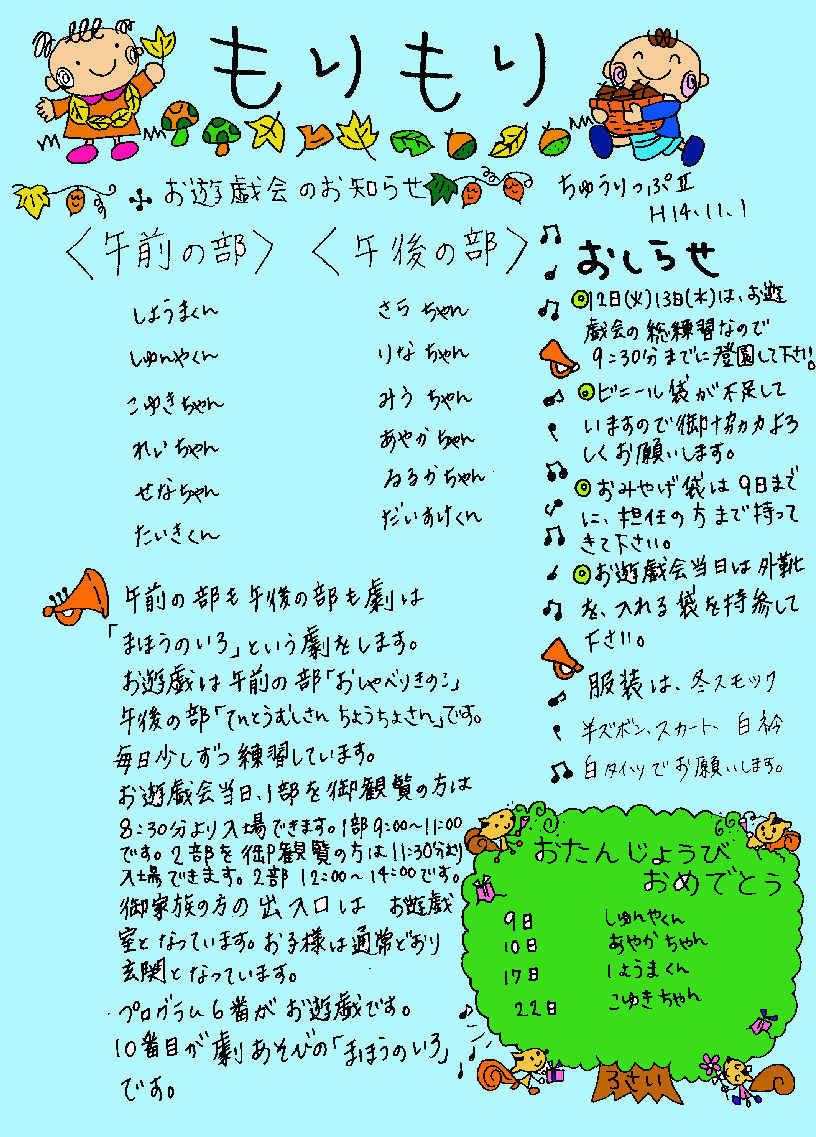 もりもり
お遊戯会のお知らせ
ちゅうりっぷⅡ
H14.11.1
〈午前の部〉
しょうまくん
しゅんやくん
こゆきちゃん
れいちゃん
せなちゃん
たいきくん
〈午後の部〉
さらちゃん
りなちゃん
みうちゃん
あやかちゃん
るかちゃん
だいすけくん
午前の部も午後の部も劇は
「まほうのいろ」という劇をします。
お遊戯は午前の部「おしゃべりきのこ」
午後の部「てんとうむしさんちょうちょさん」です。
毎日少しずつ練習しています。
お遊戯会当日、1部を御観覧の方は
8:30分より入場できます。1部9:00~11:00
です。2部を御観覧の方は11:30分より
入場できます。2部12:00~14:00です。
御家族の方の出入口は お遊戯
室となっています。お子様は通常どおり
玄関となっています。
プログラム6番がお遊戯です。
10番目が劇あそびの「まほうのいろ」
です。
おしらせ
◎12日(火)13日(水)は、お遊
戯会の総練習なので
9:30分までに登園して下さい。
◎ビニール袋が不足して
いますので御協力よろ
しくお願いします。
◎おみやげ袋は9日まで
に、担任の方まで持って
きて下さい。
◎お遊戯会当日は外靴
を、入れる袋を持参して
下さい。
服装は、冬スモック
半ズボン、スカート、白衿
白タイツでお願いします。
おたんじょうび
おめでとう
9日 しゅんやくん
10日 あやかちゃん
17日 しょうまくん
22日 こゆきちゃん
3さい